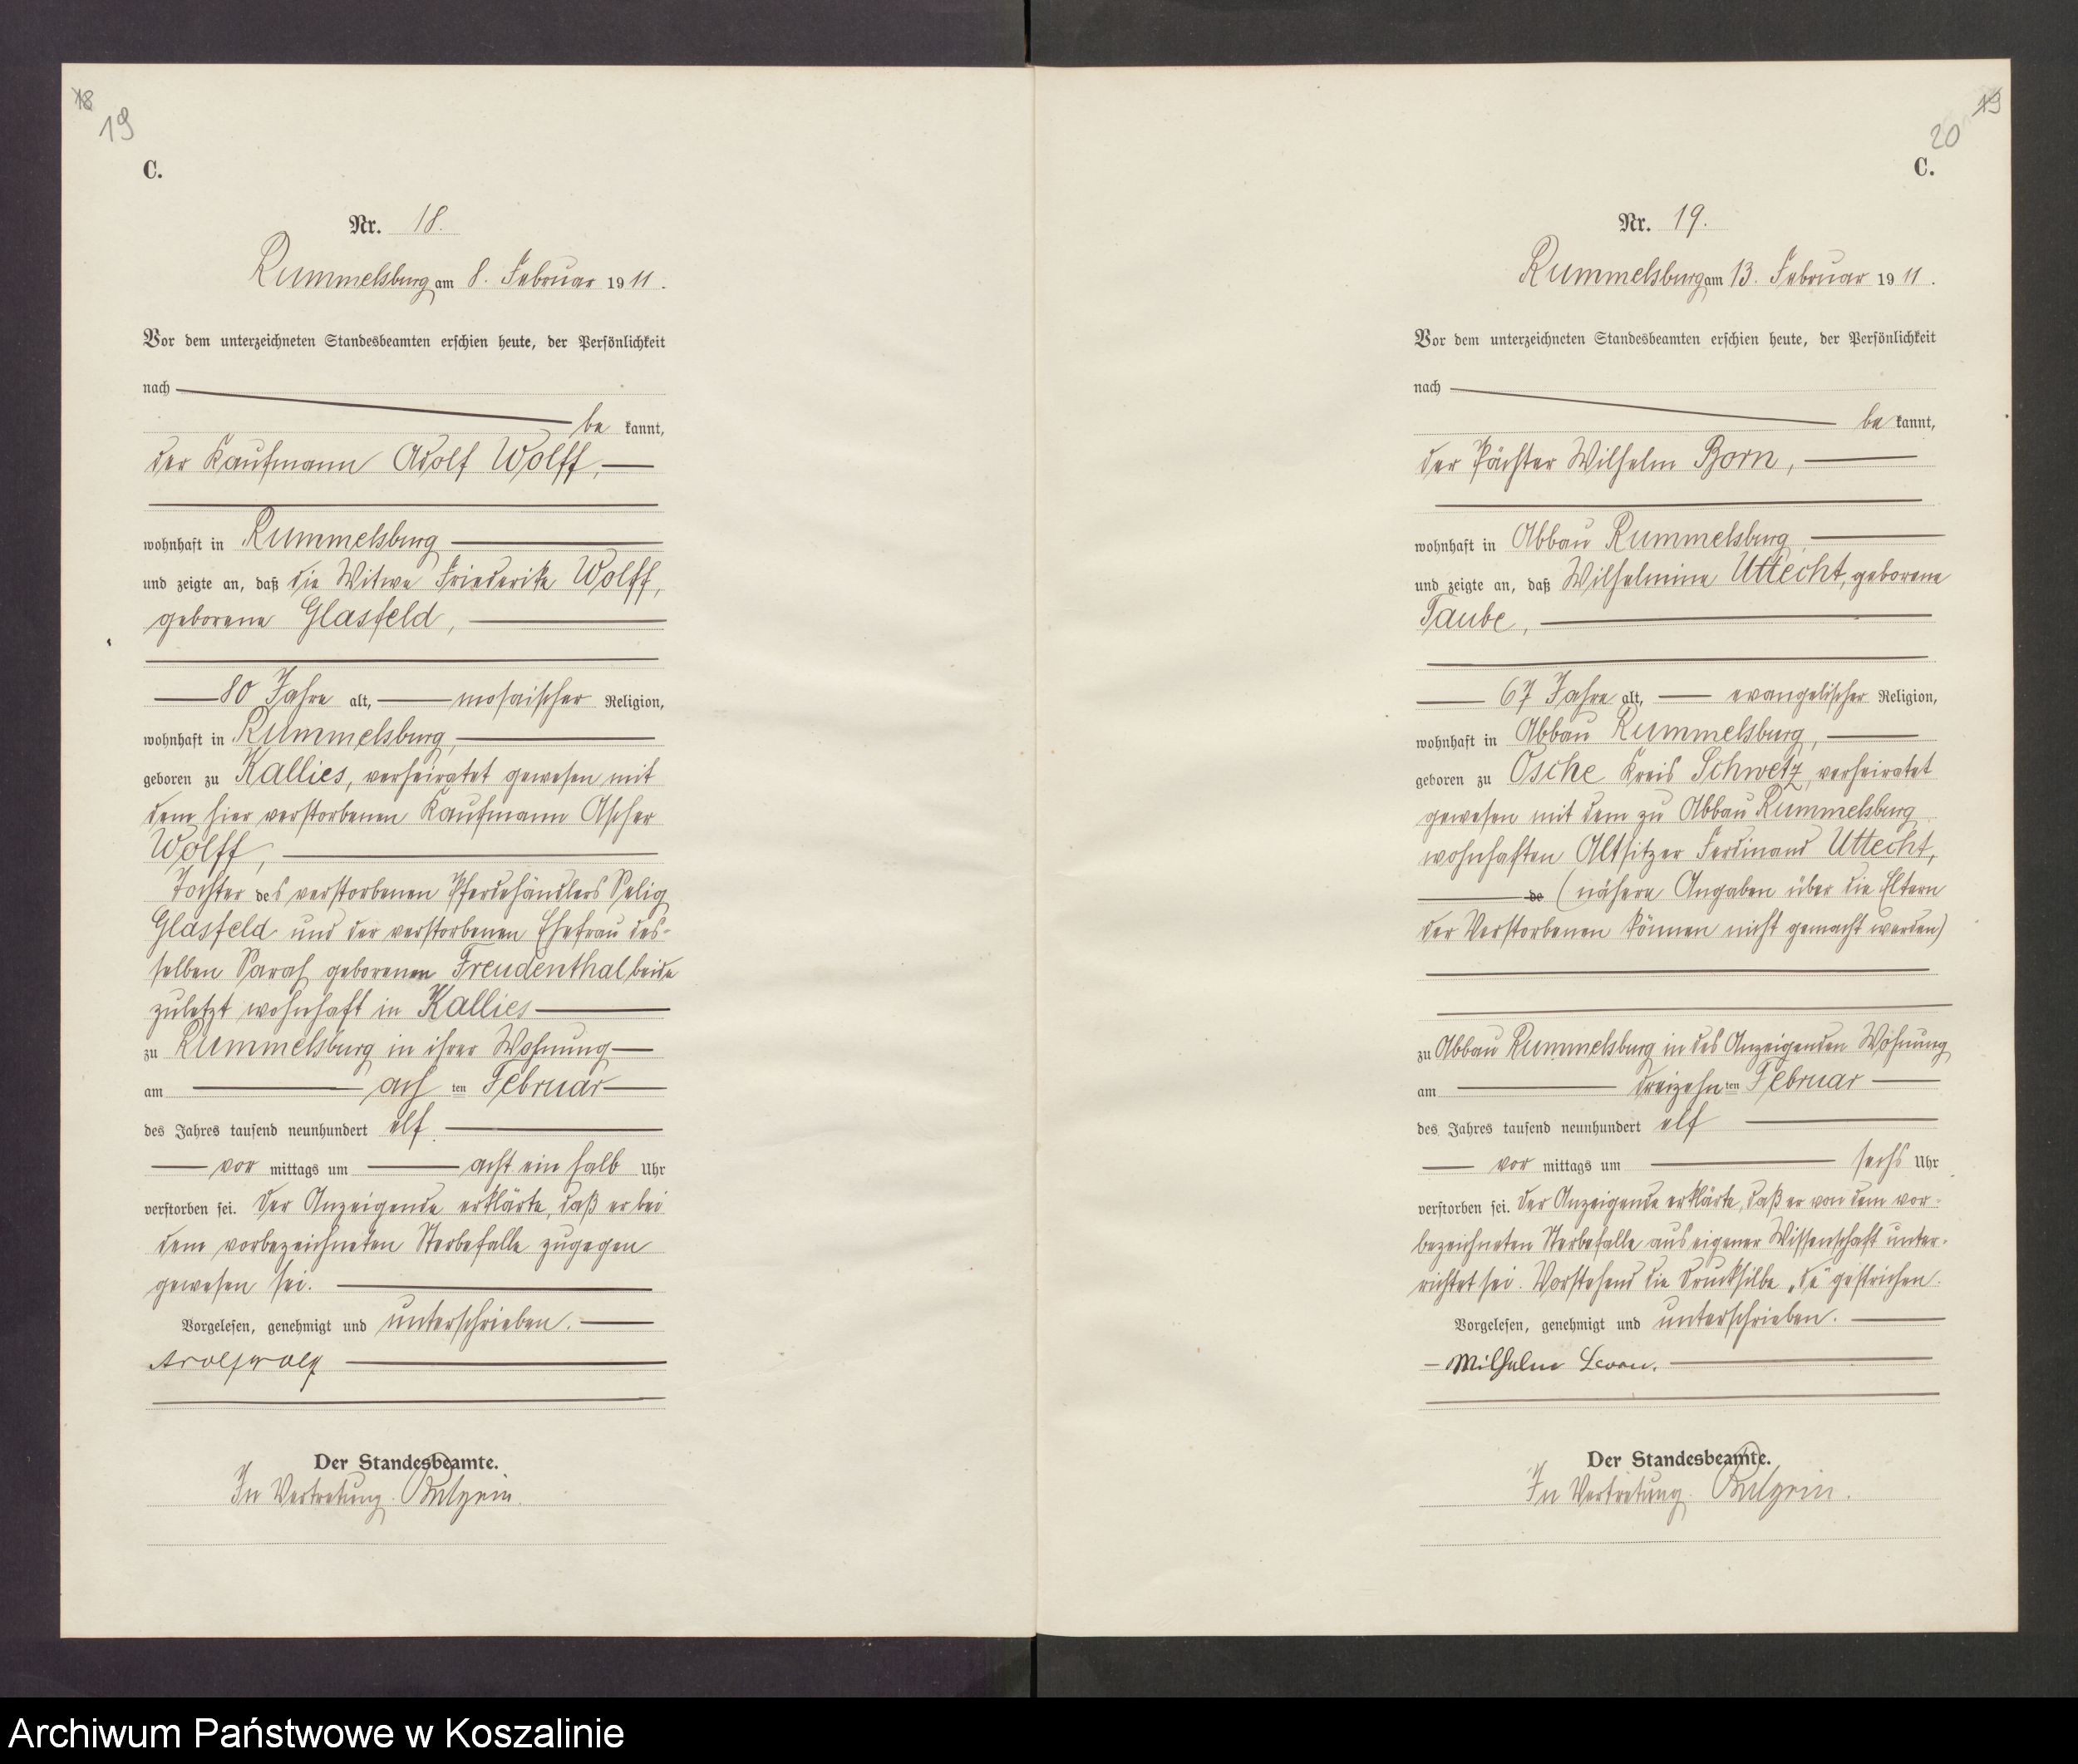 18
19
C.
Nr. 18.
Rummelsburg am 8. Februar 1911.
Vor dem unterzeichneten Standesbeamten erschien heute, der Persönlichkeit
nach
be kannt,
der Kaufmann Adolf Wolff,
wohnhaft in Rummelsburg
und zeigte an, daß die Witwe Friederike Wolff,
geborene Glasfeld,
80 Jahre alt, mosaischer Religion,
wohnhaft in Rummelsburg,
geboren zu Kallies, verheiratet gewesen mit
dem hier verstorbenen Kaufmann Ascher
Wolff,
Tochter des verstorbenen Pferdehändlers Selig
Glasfeld und der verstorbenen Ehefrau des-
selben Sarah geborenen Freudenthal beide
zuletzt wohnhaft in Kallies
zu Rummelsburg in ihrer Wohnung
am ach ten Februar
des Jahres tausend neunhundert elf
vor mittags um acht ein halb Uhr
verstorben sei. Der Anzeigende erklärte, daß er bei
dem vorbezeichneten Sterbefalle zugegen
gewesen sei.
Vorgelesen, genehmigt und unterschrieben.
Adolf Wolff
Der Standesbeamte.
In Vertretung.
19
20
C.
Nr. 19.
Rummelsburg am 13. Februar 1911.
Vor dem unterzeichneten Standesbeamten erschien heute, der Persönlichkeit
nach
be kannt,
der Pächter Wilhelm Born,
wohnhaft in Abbau Rummelsburg,
und zeigte an, daß Wilhelmine Uttecht, geborene
Taube,
67 Jahre alt, evangelischer Religion,
wohnhaft in Abbau Rummelsburg,
geboren zu Osche Kreis Schwetz, verheiratet
gewesen mit dem zu Abbau Rummelsburg
wohnhaften Altsitzer Ferdinand Uttecht,
de (nähere Angaben über die Eltern
der Verstorbenen können nicht gemacht werden)
zu Abbau Rummelsburg in des Anzeigenden Wohnung
am dreizehn ten Februar
des Jahres tausend neunhundert elf
vor mittags um sechs Uhr
verstorben sei. Der Anzeigende erklärte, daß er von dem vor-
bezeichneten Sterbefalle aus eigener Wissenschaft unter-
richtet sei. Vorstehend die Drucksilbe „de" gestrichen.
Vorgelesen, genehmigt und unterschrieben.
Wilhelm Born.
Der Standesbeamte.
In Vertretung.
Archiwum Państwowe w Koszalinie